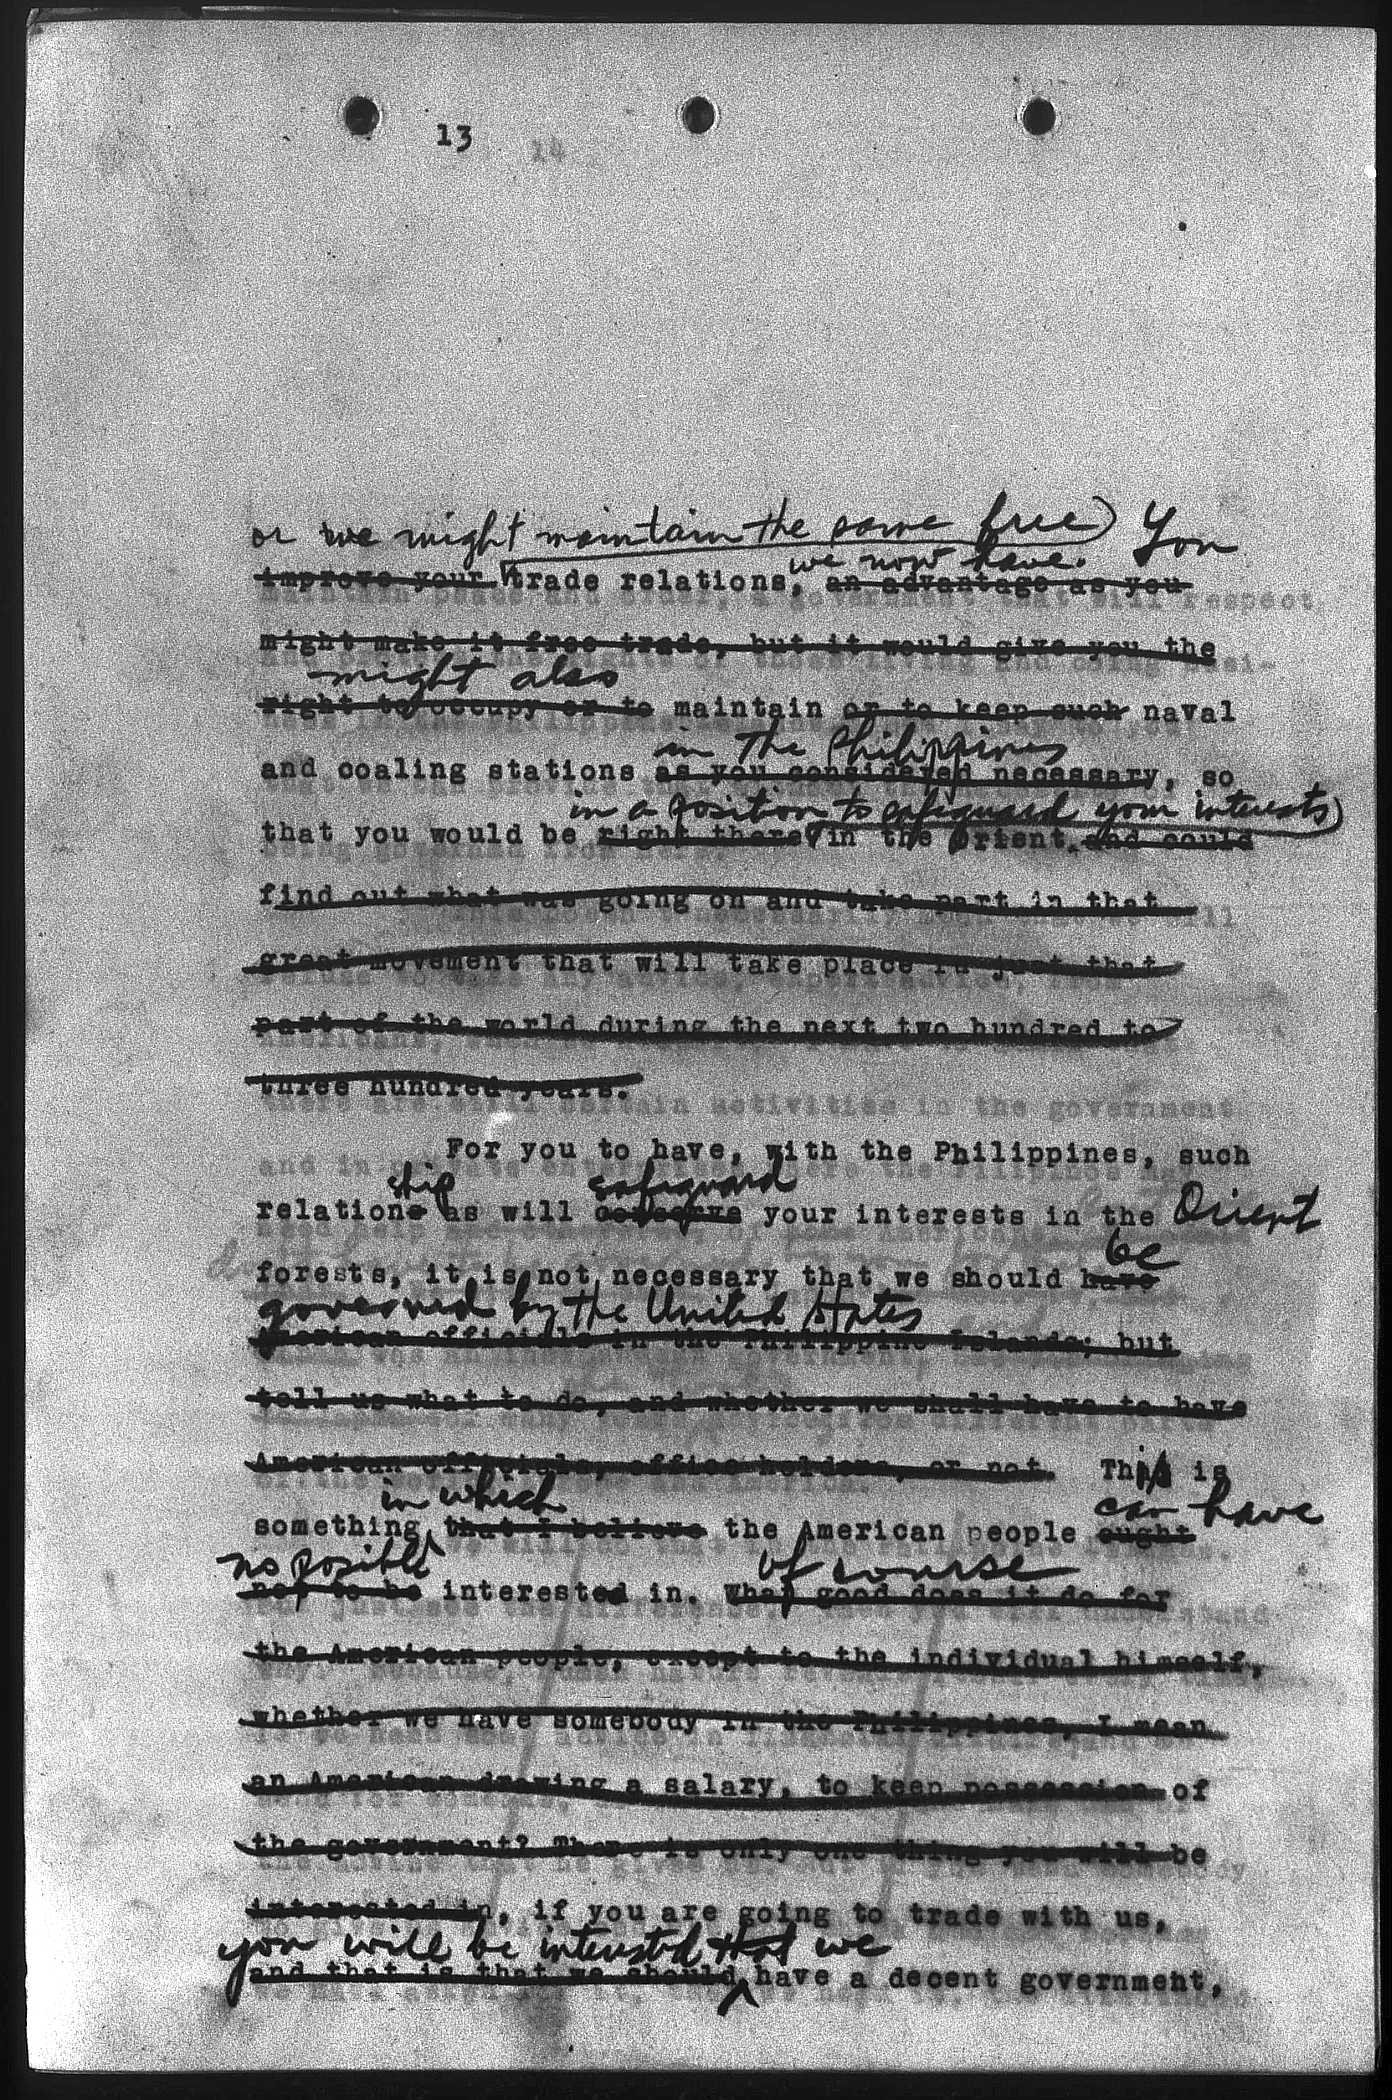 13
14
or we might maintain the same free You
we now have.
improve your trade relations, an advantage as you
might make it free trade, but it would give you the
might also
right to occupy or to maintain or to keep such naval
in the Philippines
and coaling stations as you considered necessary, so
in a position to safeguard your interests
that you would be right there in the Orient, and could
find out what was going on and take part in that
great movement that will take place in just that
part of the world during the next two hundred to
three hundred years.
For you to have, with the Philippines, such
ship safeguard
relations as will conserve your interests in the Orient
be
forests, it is not necessary that we should have
governed by the United States
American officials in the Philippine Islands; but
tell us what to do, and whether we shall have to have
American officials, office holders, or not. This is
in which can have
something that I believe the American people ought
no possible of course
not to be interested in. What good does it do for
the American people, except to the individual himself,
whether we have somebody in the Philippines, I mean
an American drawing a salary, to keep possession of
the government? There is only one thing you will be
interested in, if you are going to trade with us,
you will be interested that we
and that is that we should have a decent government,